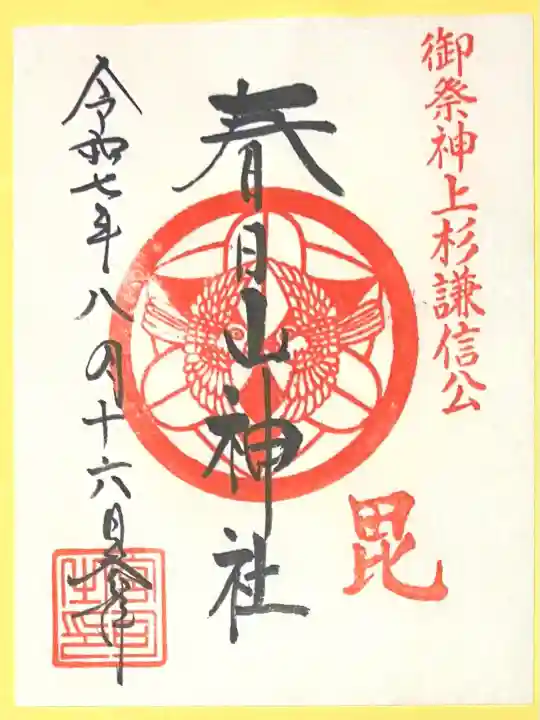 御祭神上杉謙信公
毘
春日山神社
令和七年八月十六日参拝